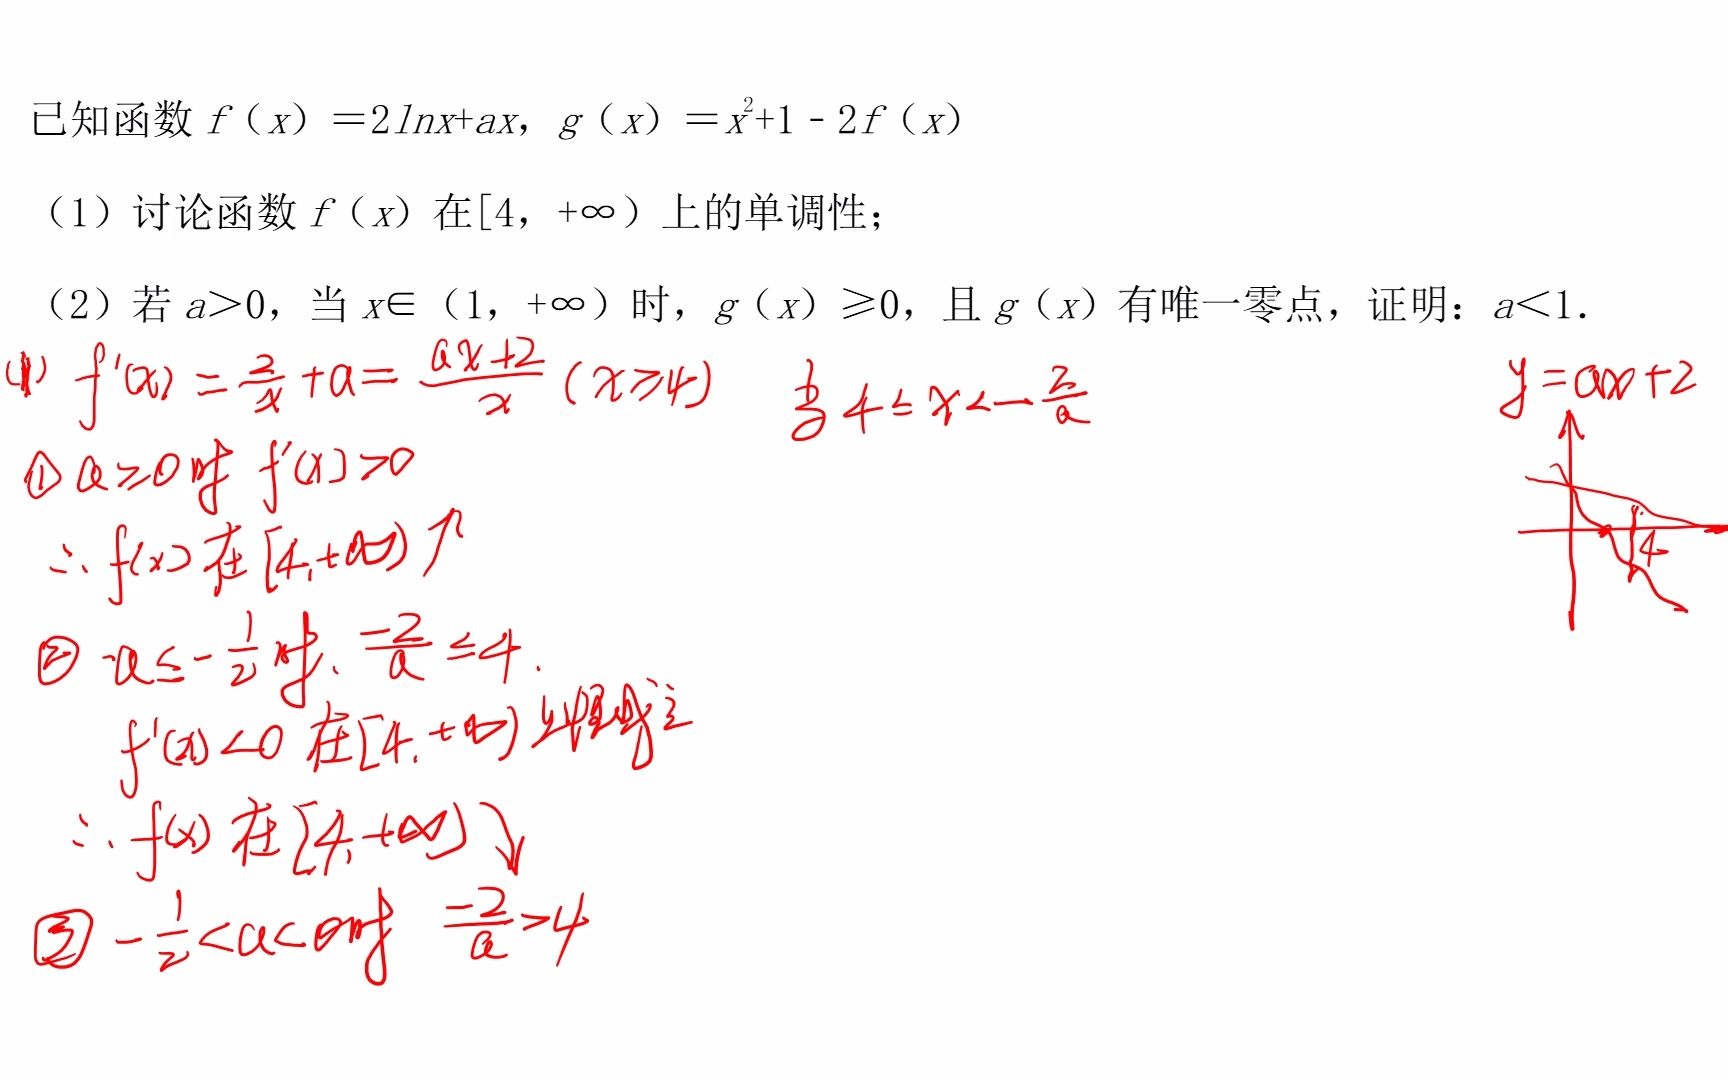 已知函数 f（x）＝2lnx+ax，g（x）＝x²+1﹣2f（x）
（1）讨论函数 f（x）在[4，+∞）上的单调性；
（2）若 a＞0，当 x∈（1，+∞）时，g（x）≥0，且 g（x）有唯一零点，证明：a＜1．
(1) f'(x) = 2/x + a = (ax+2)/x (x≥4)
① a≥0时 f'(x)>0
∴ f(x) 在 [4,+∞) ↑
② a≤-1/2时. -2/a ≤4.
f'(x)<0 在[4.+∞) 上恒成立
∴ f(x) 在 [4,+∞) ↘
③ -1/2<a<0时 -2/a >4
当 4≤x<-2/a
y=ax+2
4